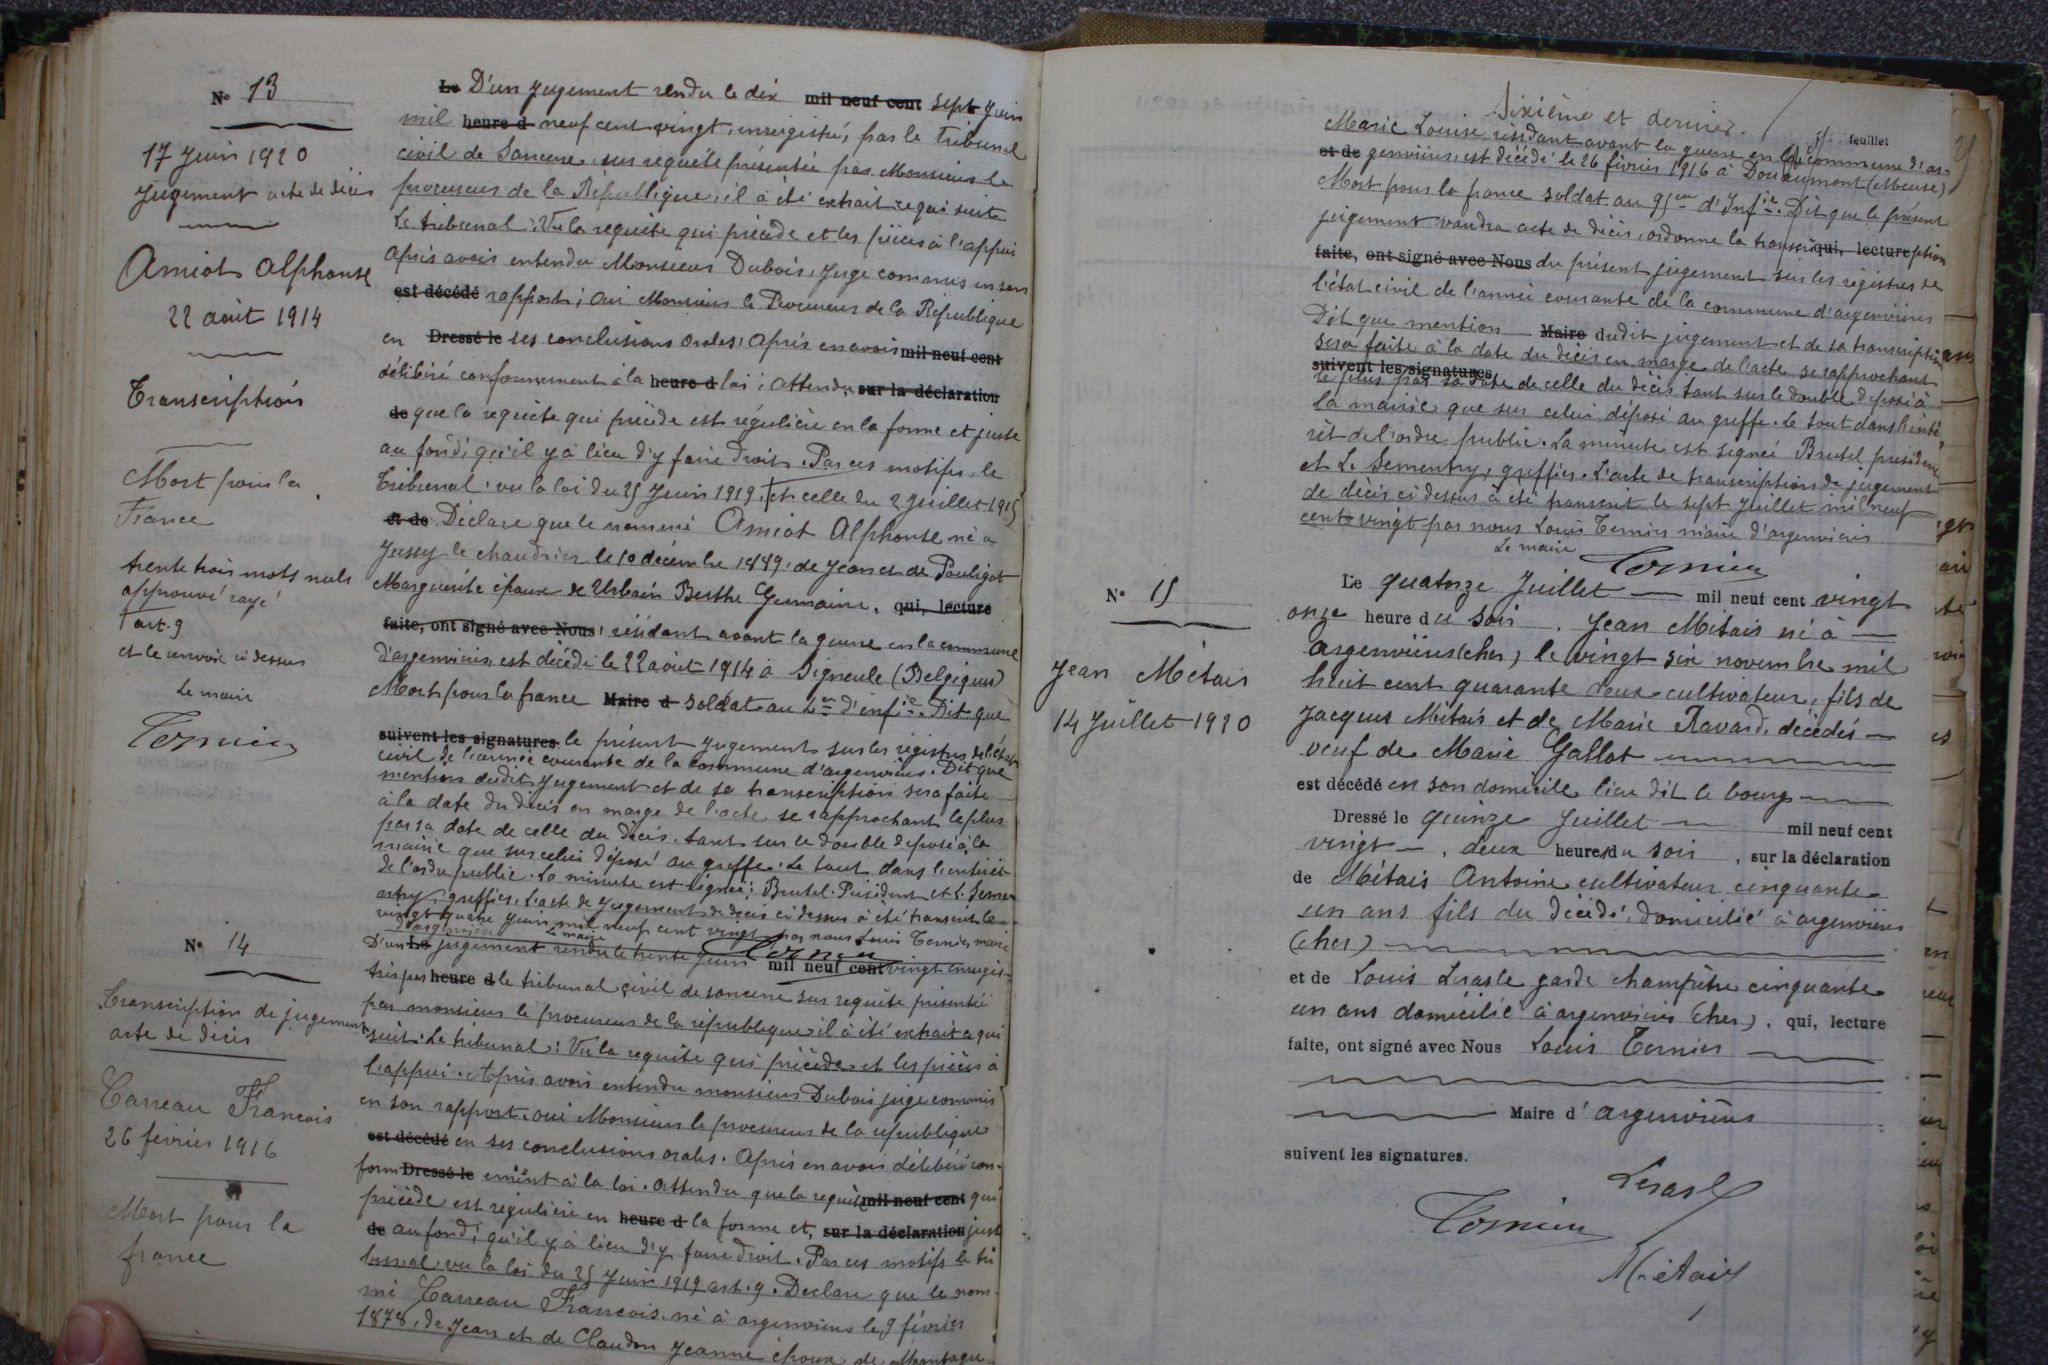 N° 13
17 Juin 1920
Jugement acte de décès
Amiot Alphonse
22 août 1914
Transcription
Mort pour la
France
trente trois mots nuls
approuvé rayé
art. 9
et le renvoi ci dessus
Le maire
Ternier
Le D'un jugement rendu le dix mil neuf cent sept Juin
mil heure d neuf cent vingt, enregistré, par le Tribunal
civil de Sancerre, sur requête présentée par Monsieur le
procureur de la République, il a été extrait ce qui suit
Le tribunal: Vu la requête qui précède et les pièces à l'appui
Après avoir entendu Monsieur Dubois, juge commis en son
est décédé rapport; Oui Monsieur le Procureur de la République
en Dressé le ses conclusions orales; Après en avoir mil neuf cent
délibéré conformément à la heure d loi; Attendu sur la déclaration
de que la requête qui précède est régulière en la forme et juste
au fond; qu'il y a lieu d'y faire droit. Par ces motifs, le
Tribunal: vu la loi du 25 Juin 1919, et celle du 2 Juillet 1915
et de Déclare que le nommé Amiot Alphonse né à
Jussy le chaudrier le 10 décembre 1889, de Jean et de Pouligot
Marguerite époux de Urbain Berthe Germaine, qui, lecture
faite, ont signé avec Nous, résidant avant la guerre en la commune
d'argenvières, est décédé le 22 août 1914 à Signeule (Belgique)
Mort pour la france Maire d soldat au d'infie. Dit que
suivent les signatures. le présent jugement sur les registres de l'état
civil de l'année courante de la commune d'argenvières. Dit que
mention dudit jugement et de sa transcription sera faite
à la date du décès en marge de l'acte se rapprochant le plus
par sa date de celle du décès, tant sur le double déposé à la
mairie que sur celui déposé au greffe. Le tout dans l'intérêt
de l'ordre public. La minute est signée: Brutel Président et L. Seme-
ntry, greffier. L'acte de jugement de décès ci dessus a été transcrit le
vingt quatre juin mil neuf cent vingt par nous Louis Ternier maire
d'argenvières Le maire Ternier
N° 14
Transcription de jugement
acte de décès
Carreau Francois
26 février 1916
Mort pour la
france
D'un Le jugement rendu le trente Juin mil neuf cent vingt enregis-
tré par heure d le tribunal civil de sancerre sur requête présentée
par monsieur le procureur de la république il a été extrait ce qui
suit. Le tribunal: Vu la requête qui précède et les pièces à
l'appui. Après avoir entendu monsieur Dubois juge commis
en son rapport, oui Monsieur le procureur de la république
est décédé en ses conclusions orales. Après en avoir délibéré con-
form Dressé le ément à la loi. Attendu que la requête mil neuf cent qui
précède est régulière en heure d la forme et, sur la déclaration juste
de au fond; qu'il y a lieu d'y faire droit. Par ces motifs le tri
bunal, vu la loi du 25 Juin 1919 art. 9. Déclare que le nom-
mé Carreau Francois, né à argenvières le 9 février
1878, de Jean et de Claudon Jeanne époux de Montagu
Sixième et dernier. feuillet
Marie Louise résidant avant la guerre en la commune d'ar-
et de genvières, est décédé le 26 février 1916 à Douaumont (Meuse)
Mort pour la france soldat au 95me d'Infie. Dit que le présent
jugement vaudra acte de décès, ordonne la transcri qui, lecture ption
faite, ont signé avec Nous du présent jugement sur les registres de
l'état civil de l'année courante de la commune d'argenvières
Dit que mention Maire dudit jugement et de sa transcription
sera faite à la date du décès en marge de l'acte se rapprochant
suivent les signatures.
le plus par sa date de celle du décès tant sur le double déposé à
la mairie que sur celui déposé au greffe. Le tout dans l'inté-
rêt de l'ordre public. La minute est signée Brutel président
et L. Sementry, greffier. L'acte de transcription de jugement
de décès ci dessus a été transcrit le sept Juillet mil neuf
cent vingt par nous Louis Ternier maire d'argenvières
Le maire
Ternier
N° 15
Jean Métais
14 Juillet 1920
Le quatorze Juillet mil neuf cent vingt
onze heure du soir, Jean Métais né à
argenvières (cher) le vingt six novembre mil
huit cent quarante deux cultivateur, fils de
Jacques Métais et de Marie Ravard, décédés
veuf de Marie Gallot
est décédé en son domicile lieu dit le bourg
Dressé le quinze Juillet mil neuf cent
vingt, deux heures du soir, sur la déclaration
de Métais Antoine cultivateur cinquante
un ans fils du décédé, domicilié à argenvières
(cher)
et de Louis Lerasle garde champêtre cinquante
un ans domicilié à argenvières (cher), qui, lecture
faite, ont signé avec Nous Louis Ternier
Maire d'argenvières
suivent les signatures.
Lerasle
Ternier
Métais